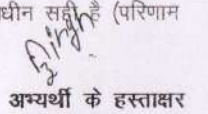 धीन सही है (परिणाम
Singh
अभ्यर्थी के हस्ताक्षर